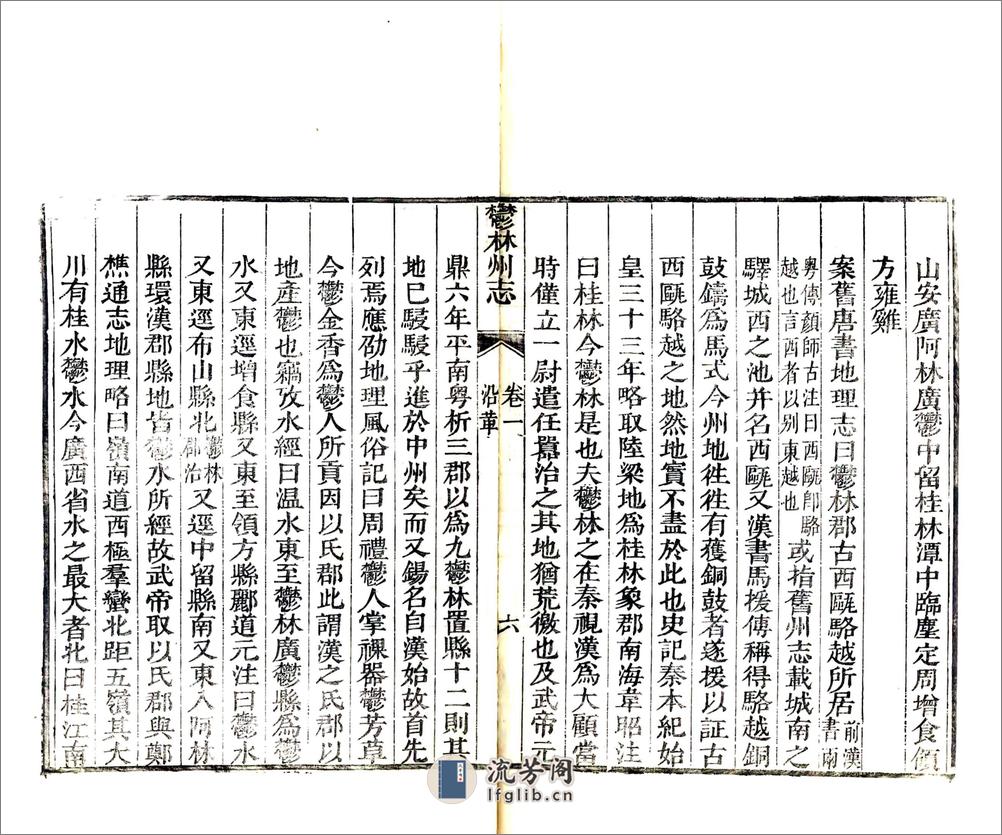 山安廣阿林廣鬱中留桂林潭中臨塵定周增食領
方雍雞
案舊唐書地理志曰鬱林郡古西甌駱越所居前漢書南
粤傳顏師古注曰西甌卽駱越也言西者以別東越也或指舊州志載城南之
驛城西之池井名西甌又漢書馬援傳稱得駱越銅
鼓鑄爲馬式今州地徃徃有獲銅鼓者遂援以証古
西甌駱越之地然地實不盡於此也史記秦本紀始
皇三十三年略取陸梁地爲桂林象郡南海韋昭注
曰桂林今鬱林是也夫鬱林之在秦視漢爲大顧當
時僅立一尉遣任囂治之其地猶荒徼也及武帝元
鬱林州志
卷一
沿革
六
鼎六年平南粤析三郡以爲九鬱林置縣十二則其
地已駸駸乎進於中州矣而又錫名自漢始故首先
列焉應劭地理風俗記曰周禮鬱人掌祼器鬱芳草
今鬱金香爲鬱人所貢因以氏郡此謂漢之氏郡以
地產鬱也竊攷水經曰温水東至鬱林廣鬱縣爲鬱
水又東逕增食縣又東至領方縣酈道元注曰鬱水
又東逕布山縣北鬱林郡治又逕中留縣南又東入阿林
縣環漢郡縣地皆鬱水所經故武帝取以氏郡與鄭
樵通志地理略曰嶺南道西極羣蠻北距五嶺其大
川有桂水鬱水今廣西省水之最大者北曰桂江南
流芳阁
lfglib.cn